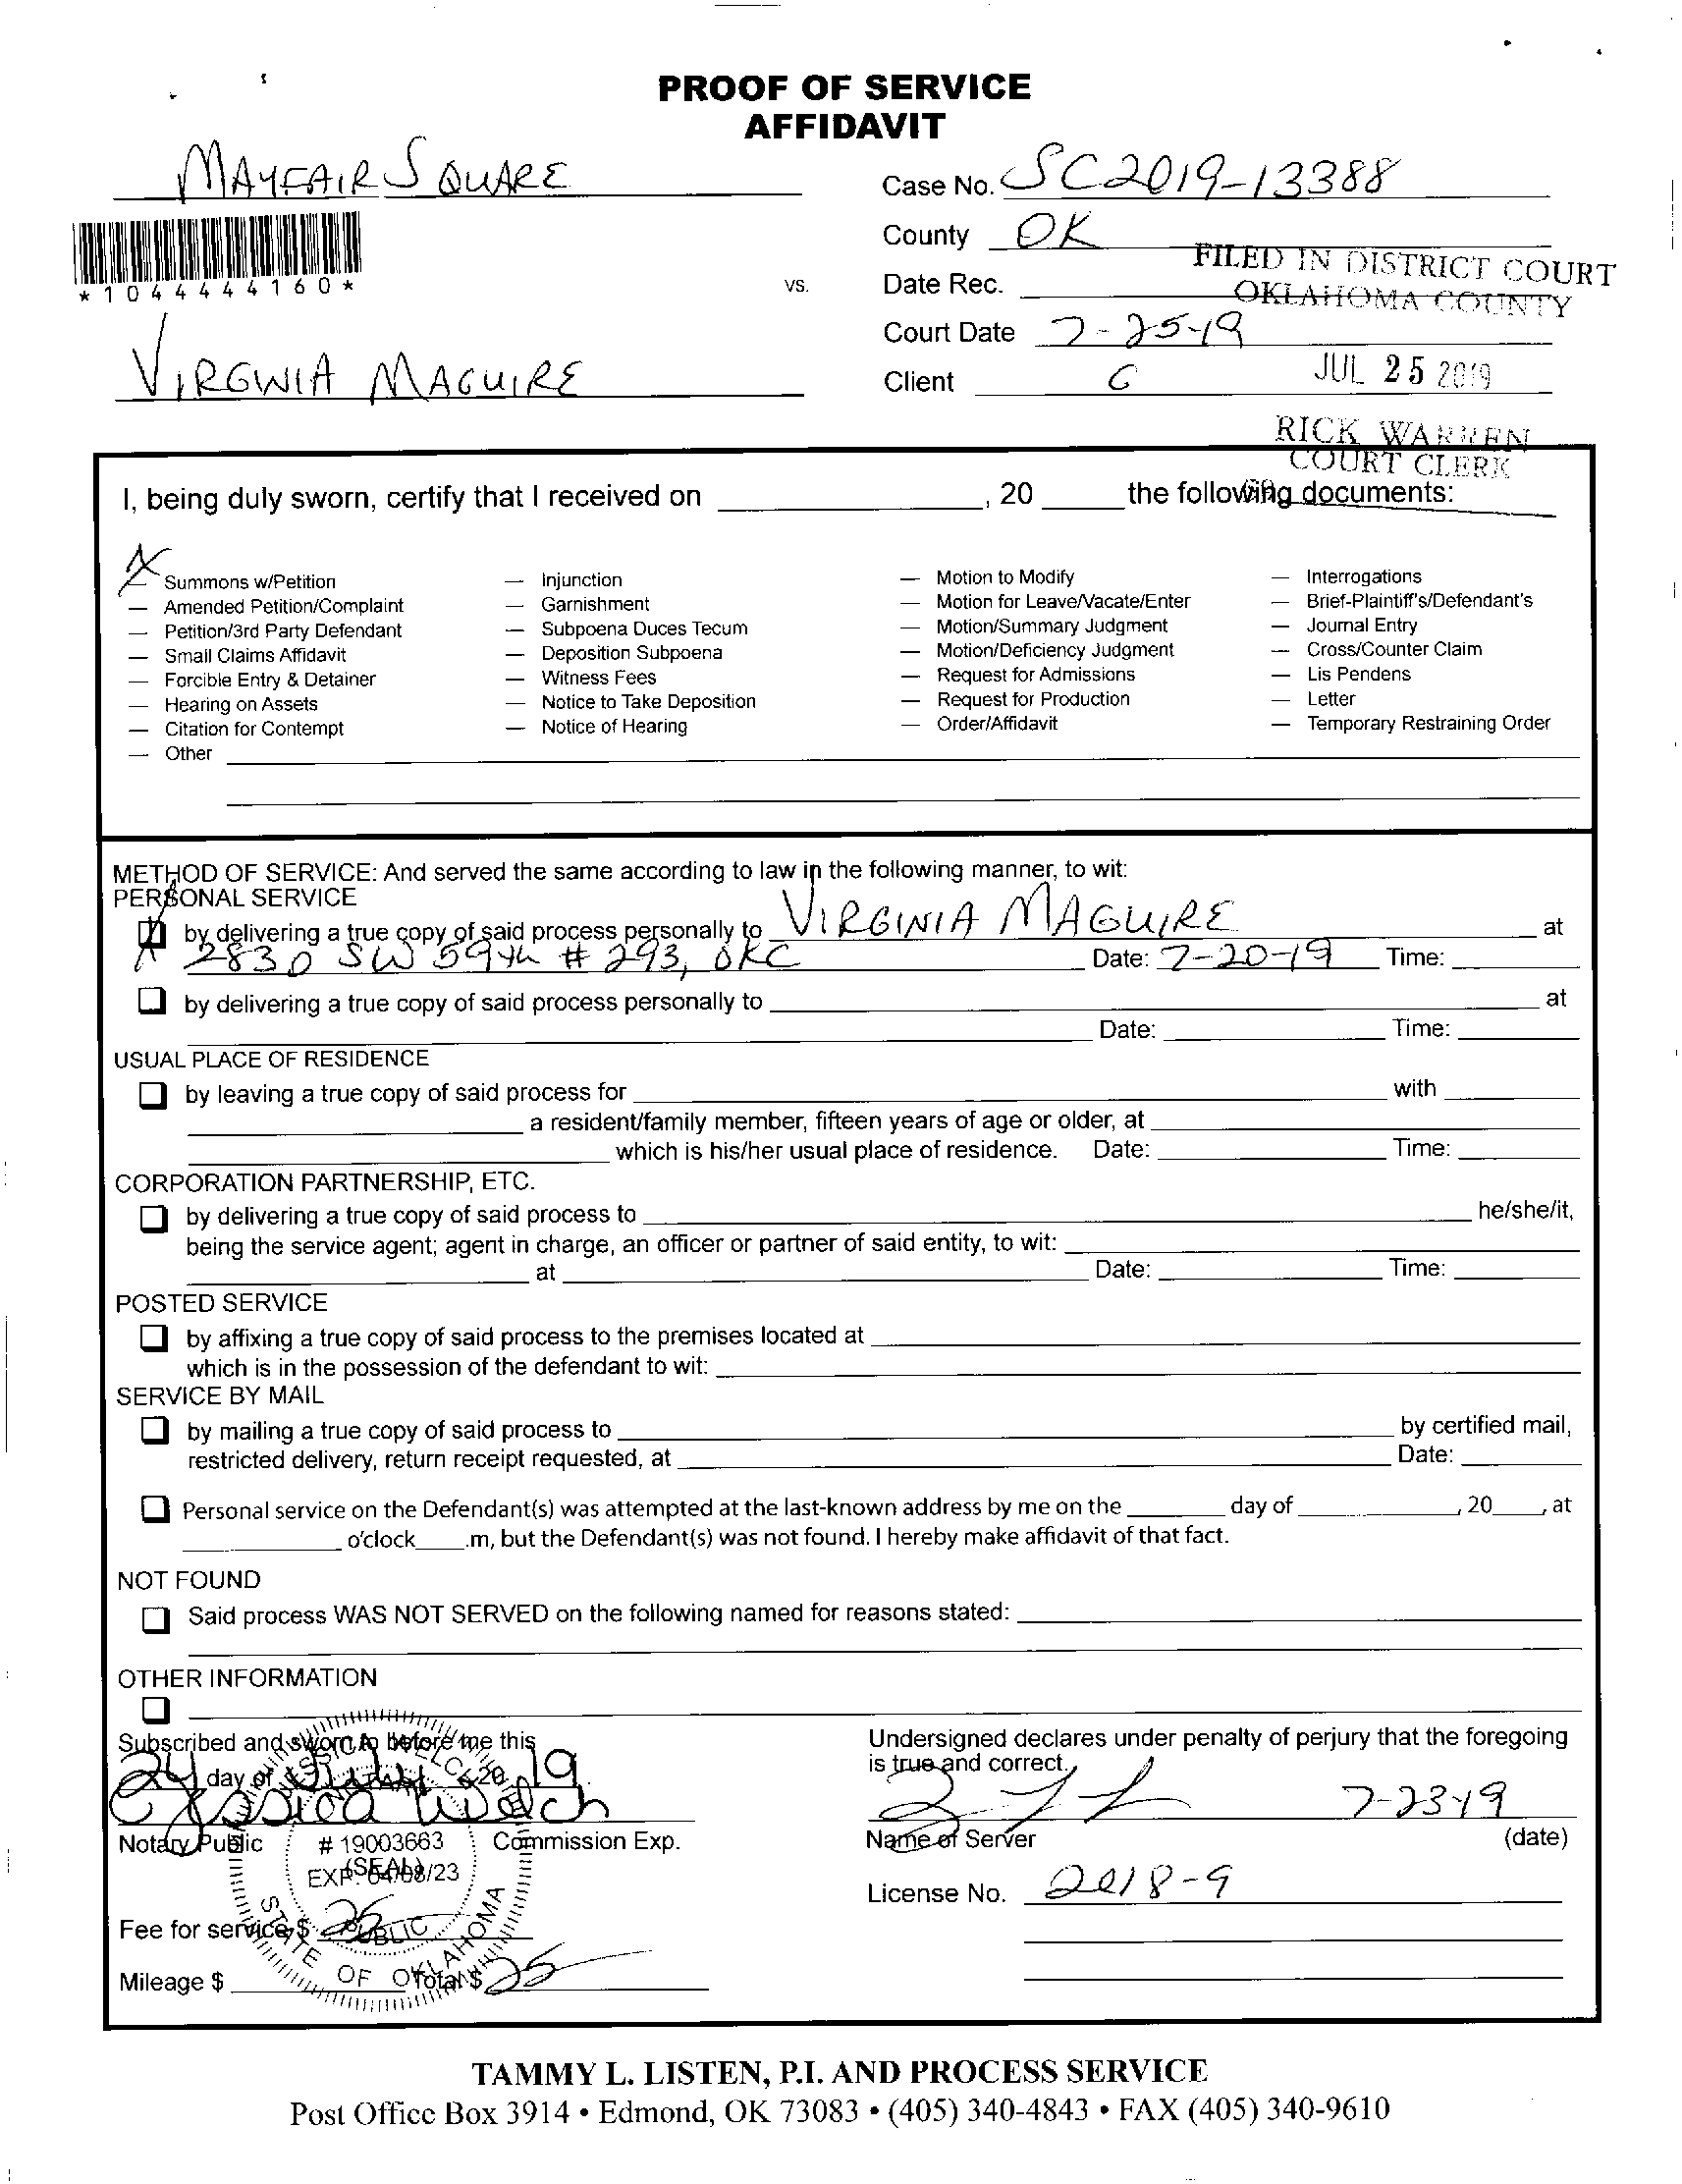 PROOF OF SERVICE
AFFIDAVIT
MAYFAIR SQUARE
Case No. SC2019-13388
*1044444160*
County OK
FILED IN DISTRICT COURT
OKLAHOMA COUNTY
vs.
Date Rec.
Court Date 7-25-19
JUL 25 2019
VIRGINIA MAGUIRE
Client G
RICK WARREN
COURT CLERK
I, being duly sworn, certify that I received on ____________, 20 ____ the following documents:
X Summons w/Petition
— Amended Petition/Complaint
— Petition/3rd Party Defendant
— Small Claims Affidavit
— Forcible Entry & Detainer
— Hearing on Assets
— Citation for Contempt
— Other
— Injunction
— Garnishment
— Subpoena Duces Tecum
— Deposition Subpoena
— Witness Fees
— Notice to Take Deposition
— Notice of Hearing
— Motion to Modify
— Motion for Leave/Vacate/Enter
— Motion/Summary Judgment
— Motion/Deficiency Judgment
— Request for Admissions
— Request for Production
— Order/Affidavit
— Interrogations
— Brief-Plaintiff's/Defendant's
— Journal Entry
— Cross/Counter Claim
— Lis Pendens
— Letter
— Temporary Restraining Order
METHOD OF SERVICE: And served the same according to law in the following manner, to wit:
PERSONAL SERVICE
X by delivering a true copy of said process personally to VIRGINIA MAGUIRE at
2830 SW 59th # 293, OKC Date: 7-20-19 Time:
by delivering a true copy of said process personally to at
Date: Time:
USUAL PLACE OF RESIDENCE
by leaving a true copy of said process for with
a resident/family member, fifteen years of age or older, at
which is his/her usual place of residence. Date: Time:
CORPORATION PARTNERSHIP, ETC.
by delivering a true copy of said process to he/she/it,
being the service agent; agent in charge, an officer or partner of said entity, to wit:
at Date: Time:
POSTED SERVICE
by affixing a true copy of said process to the premises located at
which is in the possession of the defendant to wit:
SERVICE BY MAIL
by mailing a true copy of said process to by certified mail,
restricted delivery, return receipt requested, at Date:
Personal service on the Defendant(s) was attempted at the last-known address by me on the ____ day of ____, 20____, at
____ o'clock____.m, but the Defendant(s) was not found. I hereby make affidavit of that fact.
NOT FOUND
Said process WAS NOT SERVED on the following named for reasons stated:
OTHER INFORMATION
Subscribed and sworn to before me this
24 day of July 20 19
Jessica Welch
Notary Public Commission Exp.
(SEAL)
JESSICA WELCH
NOTARY
# 19003663
EXP. 04/08/23
PUBLIC
STATE OF OKLAHOMA
Fee for service $ 25
Mileage $ Total $ 25
Undersigned declares under penalty of perjury that the foregoing
is true and correct.
7-23-19
Name of Server (date)
License No. 2018-9
TAMMY L. LISTEN, P.I. AND PROCESS SERVICE
Post Office Box 3914 • Edmond, OK 73083 • (405) 340-4843 • FAX (405) 340-9610